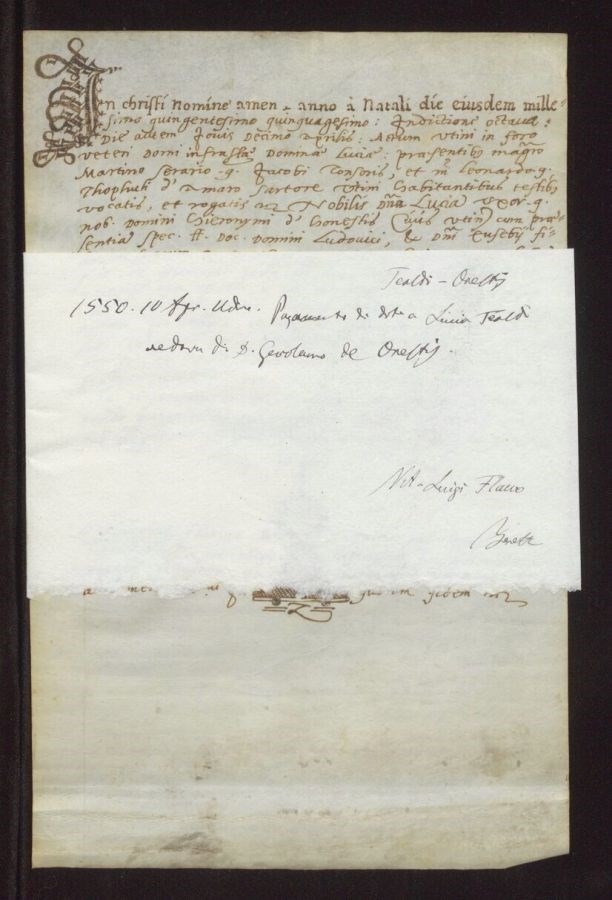 In christi nomine amen anno à Natali die eiusdem mille-
simo quingentesimo quinquagesimo: Indictione octava:
Die autem Jovis Decimo Aprilis: Actum Utini in foro
veteri domi infrascta Domina Lucia: praesentibus magro
Martino Serario q. Jacobi Tonsoris, et m Leonardo q.
Thophuli d' Amaro Sartore Utini habitantibus testibus
vocatis, et rogatis Nobilis dna Lucia Uxor q.
nob. Domini Hieronymi d' honestis Civis Utin cum prae-
sentia Spec. Doc. Domini Ludovici, & Dni Eusebii fi-
Tealdi - Onestis
1550. 10 Apr. Udine. Pagamento di dote a Lucia Tealdi
vedova di D. Gerolamo de Onestis.
Not. Luigi Flavo